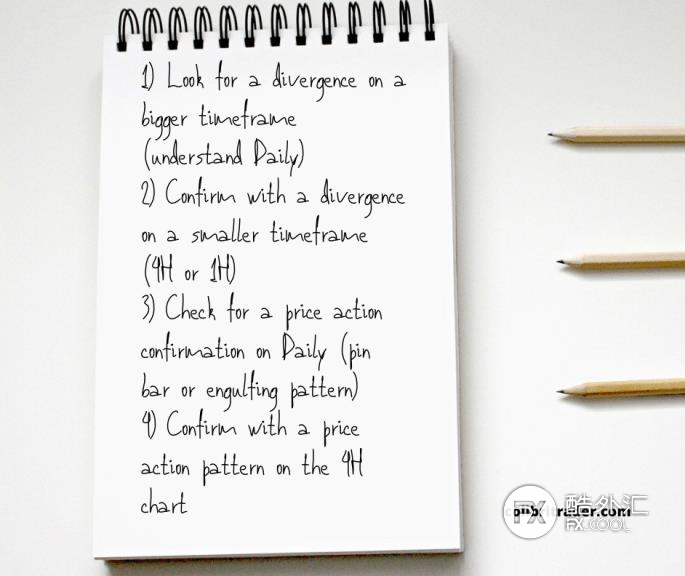 1) Look for a divergence on a
bigger timeframe
(understand Daily)
2) Confirm with a divergence
on a smaller timeframe
(4H or 1H)
3) Check for a price action
confirmation on Daily (pin
bar or engulfing pattern)
4) Confirm with a price
action pattern on the 4H
chart
colibritrader.com
FX 酷外汇
FX.COOL